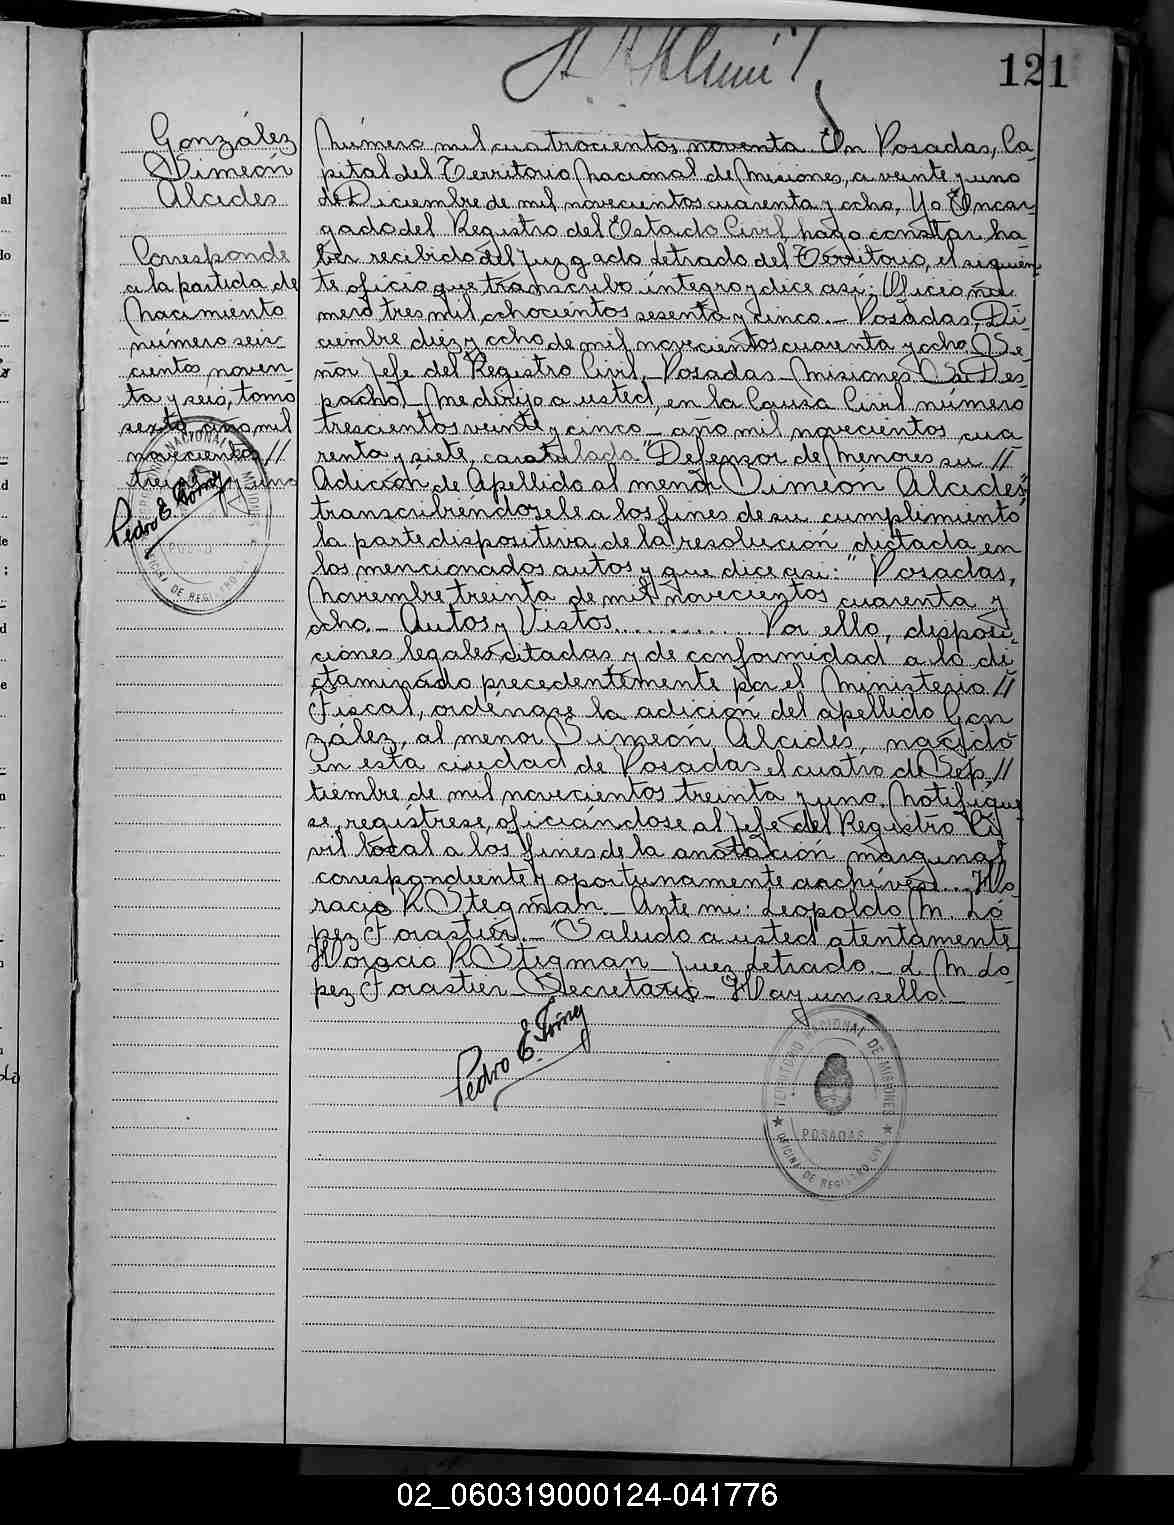 121
González
Simeón
Alcides
Corresponde
a la partida de
Nacimiento
número seis-
cientos noven-
ta y seis, tomo
sexto, año mil
novecientos //
treinta y uno
Pedro E. Torney
Número mil cuatrocientos noventa. En Posadas, Ca-
pital del Territorio Nacional de Misiones, a veinte y uno
de Diciembre de mil novecientos cuarenta y ocho, Yo Encar-
gado del Registro del Estado Civil hago constar ha-
ber recibido del Juzgado Letrado del Territorio, el siguien-
te oficio que transcribo íntegro y dice así: Oficio nú-
mero tres mil ochocientos sesenta y cinco.- Posadas, Di-
ciembre diez y ocho de mil novecientos cuarenta y ocho. Se-
ñor Jefe del Registro Civil.- Posadas - Misiones. Su Des-
pacho.- Me dirijo a usted, en la Causa Civil número
trescientos veinte y cinco - año mil novecientos cua
renta y siete, caratulada "Defensor de Menores su //
Adición de Apellido al menor Simeón Alcides",
transcribiéndosele a los fines de su cumplimiento
la parte dispositiva de la resolución dictada en
los mencionados autos y que dice así: "Posadas,
Noviembre treinta de mil novecientos cuarenta y
ocho.- Autos y Vistos............ Por ello, disposi-
ciones legales citadas y de conformidad a lo di
ctaminado precedentemente por el Ministerio //
Fiscal, ordénase la adición del apellido Gon
zález, al menor Simeón Alcides, nacido
en esta ciudad de Posadas el cuatro de Sep //
tiembre de mil novecientos treinta y uno. Notifíque
se, regístrese, oficiándose al Jefe del Registro Ci
vil local a los fines de la anotación marginal
correspondiente y oportunamente archívese... Ho-
racio R Stegman.- Ante mi: Leopoldo M. Ló
pez Forastier.- Saludo a usted atentamente
Horacio R Stegman - Juez Letrado.- L. M. Lo
pez Forastier - Secretario - Hay un sello.-
Pedro E. Torney
TERRITORIO NACIONAL DE MISIONES
POSADAS
OFICINA DE REGISTRO CIVIL
02_060319000124-041776